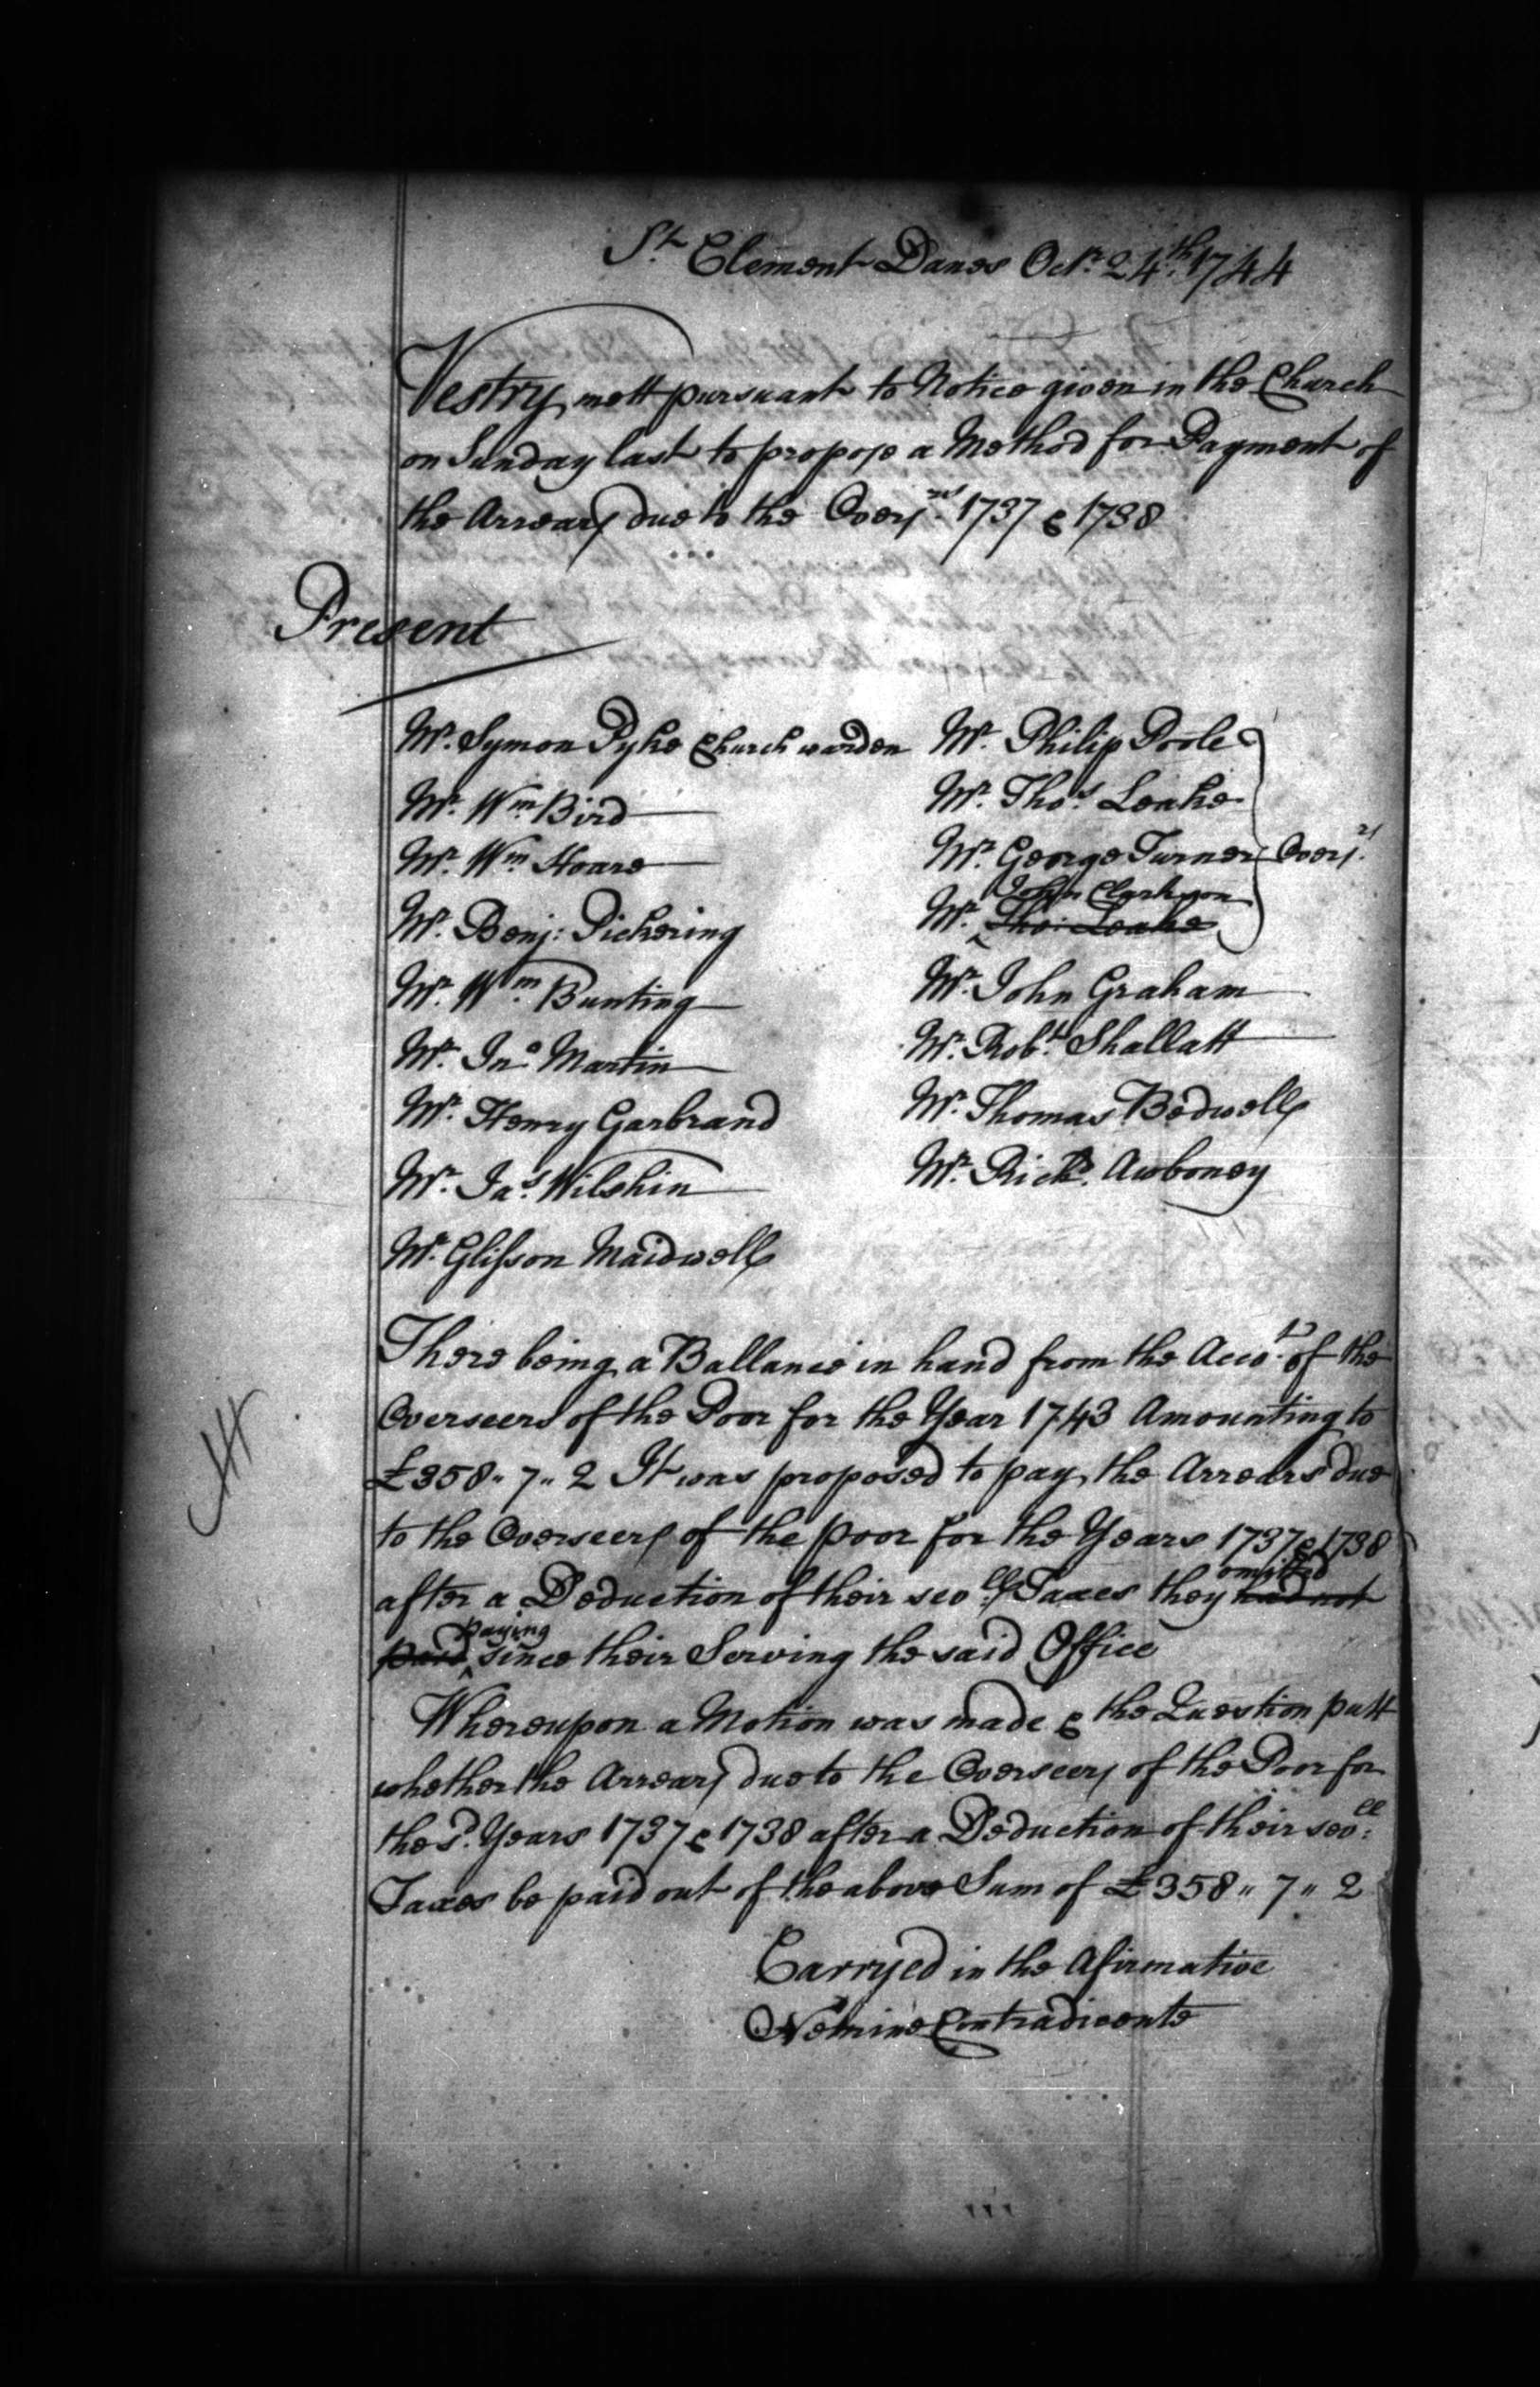 St. Clement Danes Octr. 24th. 1744
Vestry mett pursuant to Notice given in the Church
on Sunday last to propose a Method for Payment of
the Arrears due to the Overs.rs 1737 & 1738
Present
Mr. Symon Pyke Church warden
Mr. Wm. Bird
Mr. Wm. Hoare
Mr. Benj: Pickering
Mr. Wm. Bunting
Mr. Jno. Martin
Mr. Henry Garbrand
Mr. Jas. Wilshin
Mr. Glisson Maidwell
Mr. Philip Poole
Mr. Thos. Leake
Mr. George Turner Overs.rs
John Clarkson
Mr. Tho: Leake
Mr. John Graham
Mr. Robt. Shallatt
Mr. Thomas Bedwell
Mr. Richd. Awboney
There being a Ballance in hand from the Accots. of the
Overseers of the Poor for the Year 1743 Amounting to
£358 " 7 " 2 It was proposed to pay the Arrears due
to the Overseers of the poor for the Years 1737 & 1738
omitted
after a Deduction of their sevll. Taxes they had not
paying
paid since their Serving the said Office
Whereupon a Motion was made & the Question putt
whether the Arrears due to the Overseers of the Poor for
the sd. Years 1737 & 1738 after a Deduction of their sevll:
Taxes be paid out of the above Sum of £358 " 7 " 2
Carryed in the Afirmative
Nemine Contradicente